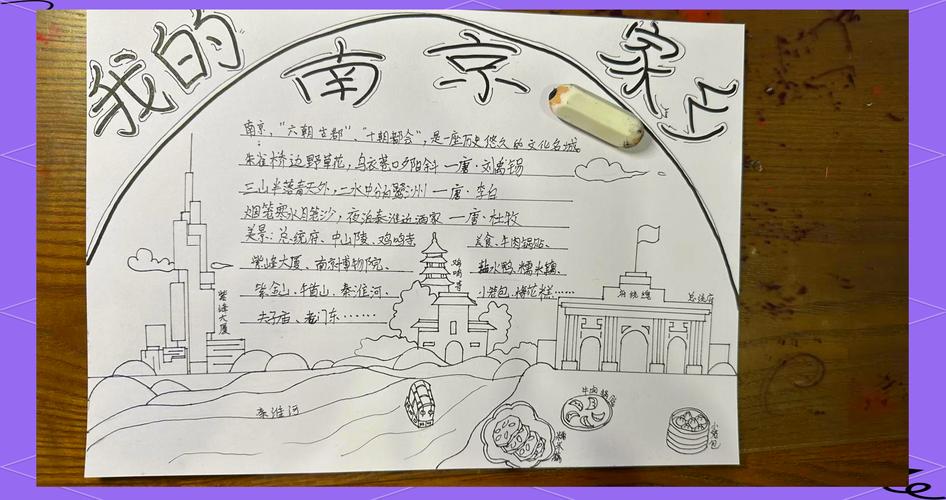 我的
南京
家乡
南京，"六朝古都"、"十朝都会"，是一座历史悠久的文化名城。
朱雀桥边野草花，乌衣巷口夕阳斜 —唐·刘禹锡
三山半落青天外，二水中分白鹭洲 —唐·李白
烟笼寒水月笼沙，夜泊秦淮近酒家 —唐·杜牧
美景：总统府、中山陵、鸡鸣寺
紫峰大厦、南京博物院、
紫金山、牛首山、秦淮河、
夫子庙、老门东……
美食：牛肉锅贴、
盐水鸭、糯米藕、
小笼包、梅花糕……
紫峰大厦
鸡鸣寺
府统总
总统府
秦淮河
牛肉锅贴
糯米藕
小笼包